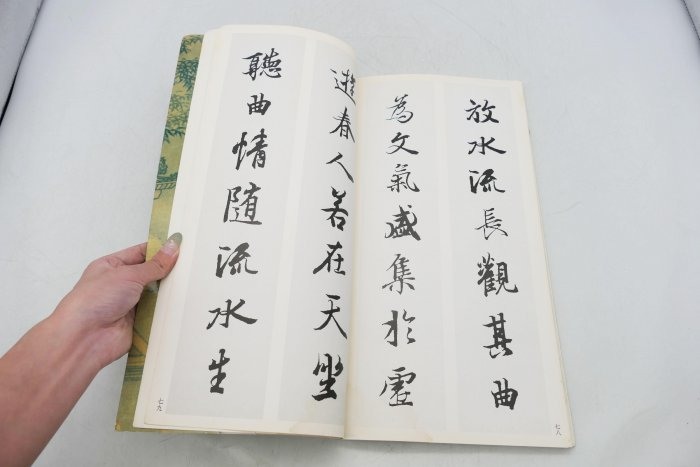 放水流長觀其曲
為文氣盛集於虛
七八
遊春人若在天坐
聽曲情随流水生
七九